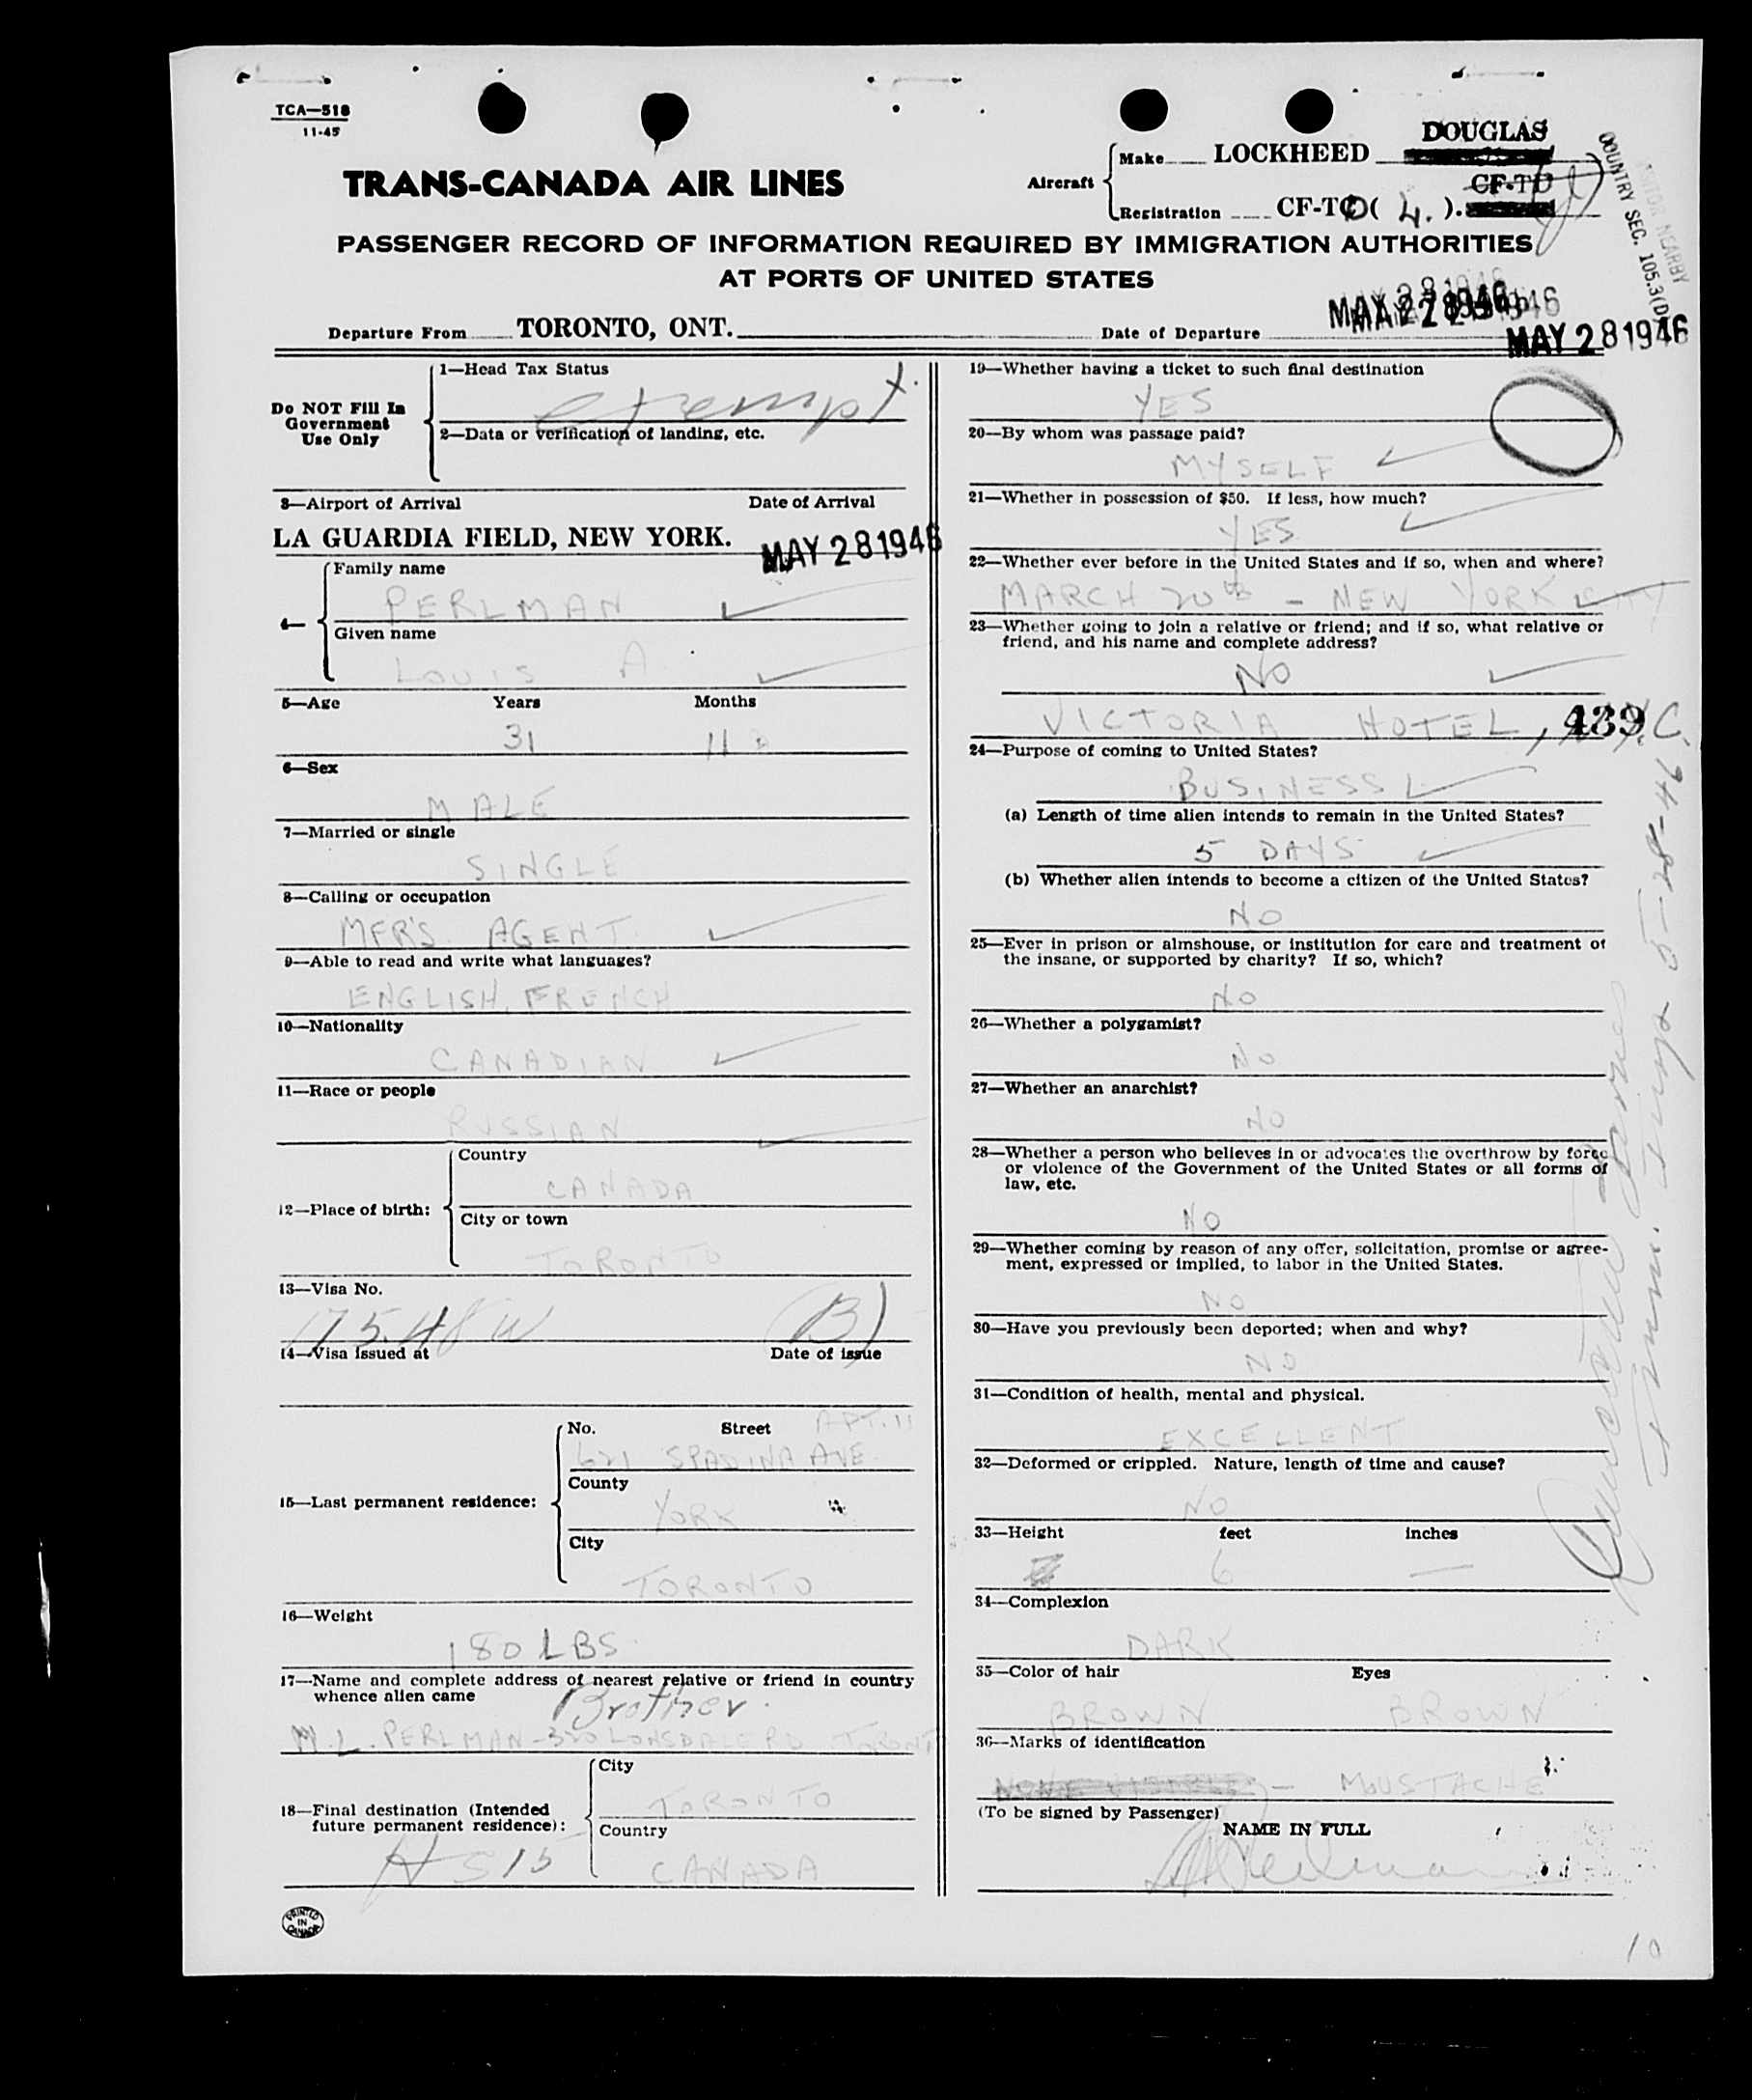 TCA—518
11-45
TRANS-CANADA AIR LINES
Aircraft
Make LOCKHEED DOUGLAS
CF-TU
Registration CF-TC ( 4. ).
COUNTRY SEC. 105.3(D)
NEARBY
PASSENGER RECORD OF INFORMATION REQUIRED BY IMMIGRATION AUTHORITIES
AT PORTS OF UNITED STATES
Departure From TORONTO, ONT. Date of Departure MAY 28 1946
MAY 28 1946
Do NOT Fill In
Government
Use Only
1—Head Tax Status
exempt
2—Data or verification of landing, etc.
3—Airport of Arrival Date of Arrival
LA GUARDIA FIELD, NEW YORK. MAY 28 1946
4—
Family name
PERLMAN
Given name
LOUIS A
5—Age Years Months
31 11
6—Sex
MALE
7—Married or single
SINGLE
8—Calling or occupation
MFR'S. AGENT
9—Able to read and write what languages?
ENGLISH, FRENCH
10—Nationality
CANADIAN
11—Race or people
RUSSIAN
12—Place of birth:
Country
CANADA
City or town
TORONTO
13—Visa No.
17548W (B)
14—Visa issued at Date of issue
15—Last permanent residence:
No. Street APT. 11
621 SPADINA AVE
County
YORK
City
TORONTO
16—Weight
180 LBS
17—Name and complete address of nearest relative or friend in country
whence alien came
Brother
M. L. PERLMAN - 320 LONSDALE RD TORONT
18—Final destination (Intended
future permanent residence):
City
TORONTO
Country
CANADA
H 515
PRINTED
IN
CANADA
19—Whether having a ticket to such final destination
YES
20—By whom was passage paid?
MYSELF
21—Whether in possession of $50. If less, how much?
YES
22—Whether ever before in the United States and if so, when and where?
MARCH 20th - NEW YORK CITY
23—Whether going to join a relative or friend; and if so, what relative or
friend, and his name and complete address?
NO
VICTORIA HOTEL, N.Y.C.
439
24—Purpose of coming to United States?
BUSINESS
(a) Length of time alien intends to remain in the United States?
5 DAYS
(b) Whether alien intends to become a citizen of the United States?
NO
25—Ever in prison or almshouse, or institution for care and treatment of
the insane, or supported by charity? If so, which?
NO
26—Whether a polygamist?
NO
27—Whether an anarchist?
NO
28—Whether a person who believes in or advocates the overthrow by force
or violence of the Government of the United States or all forms of
law, etc.
NO
29—Whether coming by reason of any offer, solicitation, promise or agree-
ment, expressed or implied, to labor in the United States.
NO
30—Have you previously been deported; when and why?
NO
31—Condition of health, mental and physical.
EXCELLENT
32—Deformed or crippled. Nature, length of time and cause?
NO
33—Height feet inches
6 —
34—Complexion
DARK
35—Color of hair Eyes
BROWN BROWN
36—Marks of identification
NONE VISIBLE - MOUSTACHE
(To be signed by Passenger)
NAME IN FULL
LAPerlman
Imm. Insp 5-28-46
10